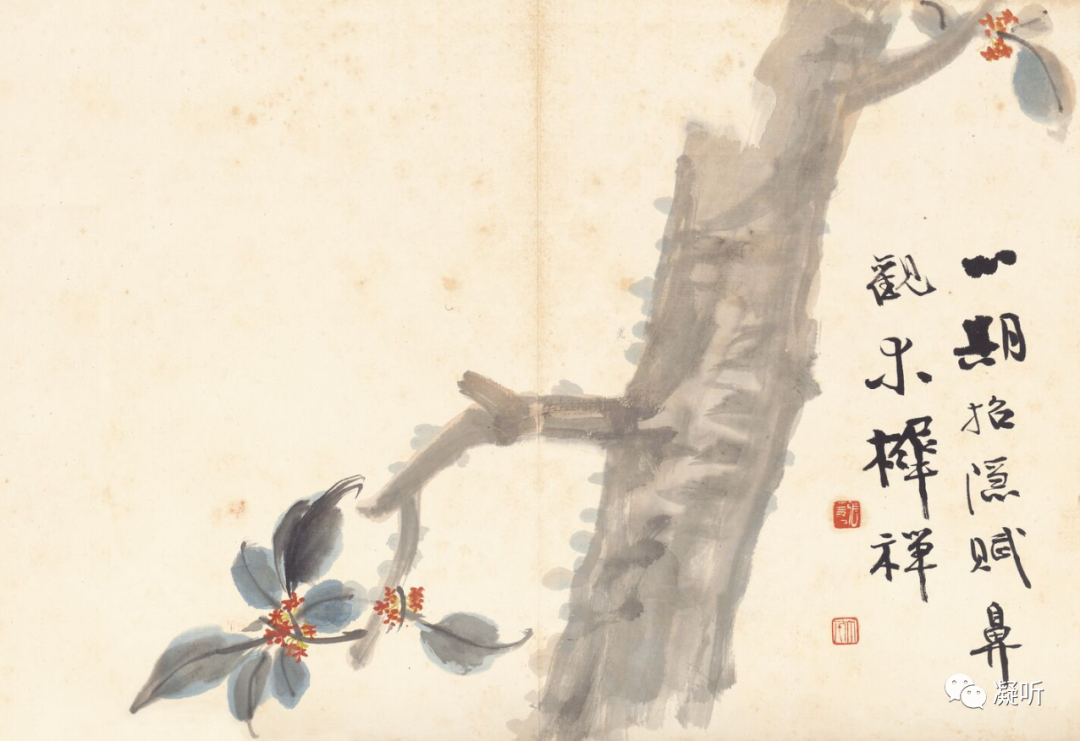 心期招隱賦鼻
觀木樨禪
凝听